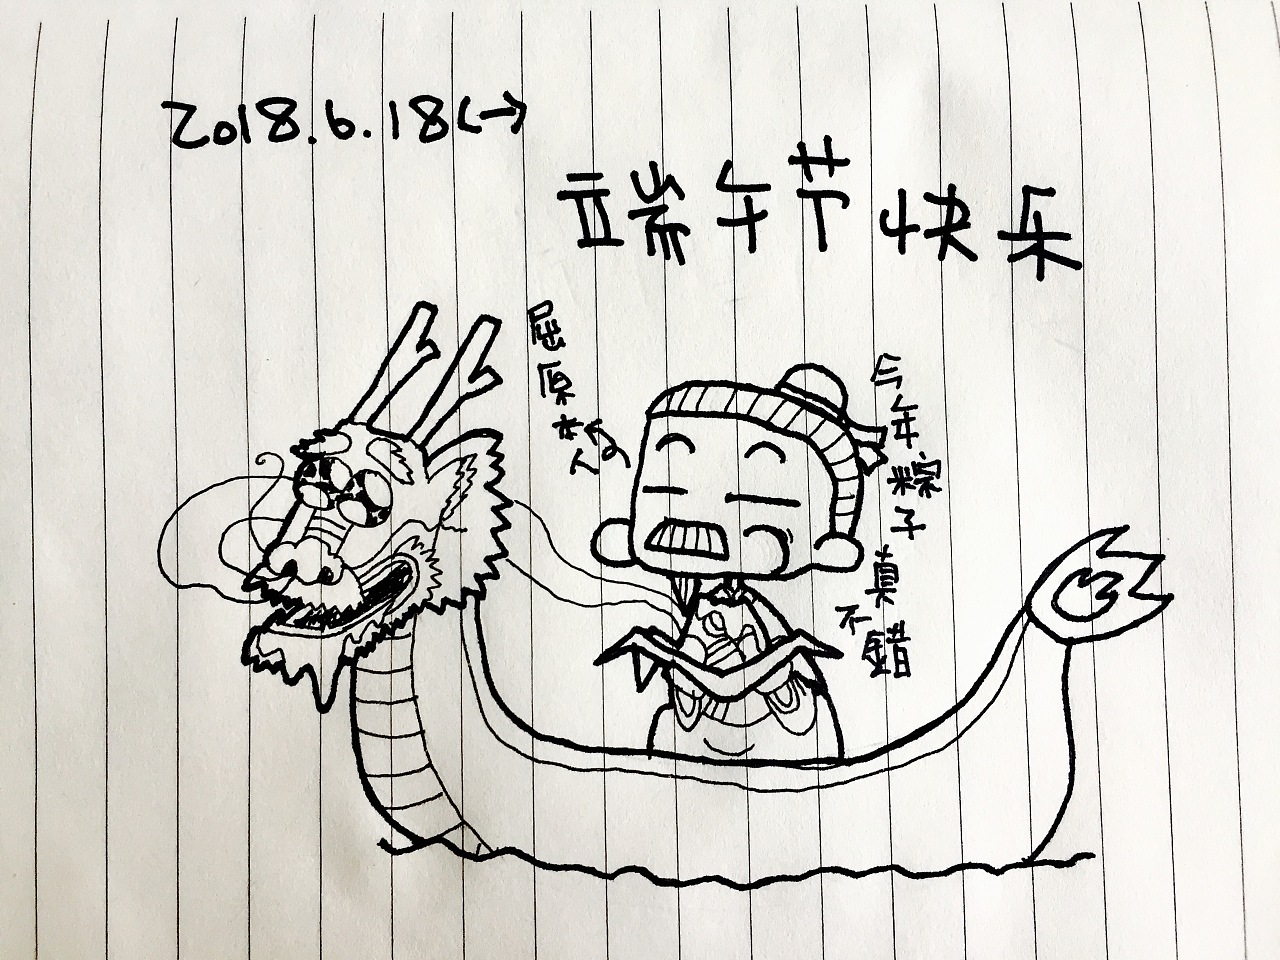 2018.6.18(一)
端午节快乐
屈原本人
今年粽子真不錯